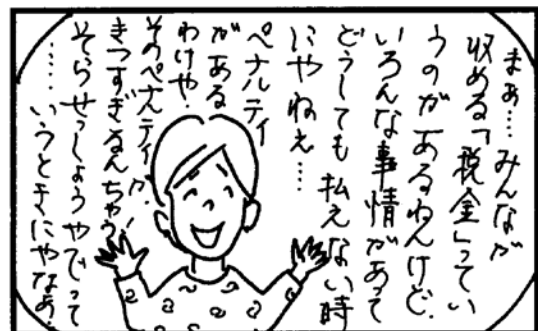 まぁ…みんなが
収める「税金」ってい
うのがあるねんけど、
いろんな事情があって
どうしても払えない時
にやねぇ…
ペナルティ
がある
わけや。
そのペナルティが、
きつすぎるんちゃう!
そらせっしょうやでって
……いうときにやなぁ、